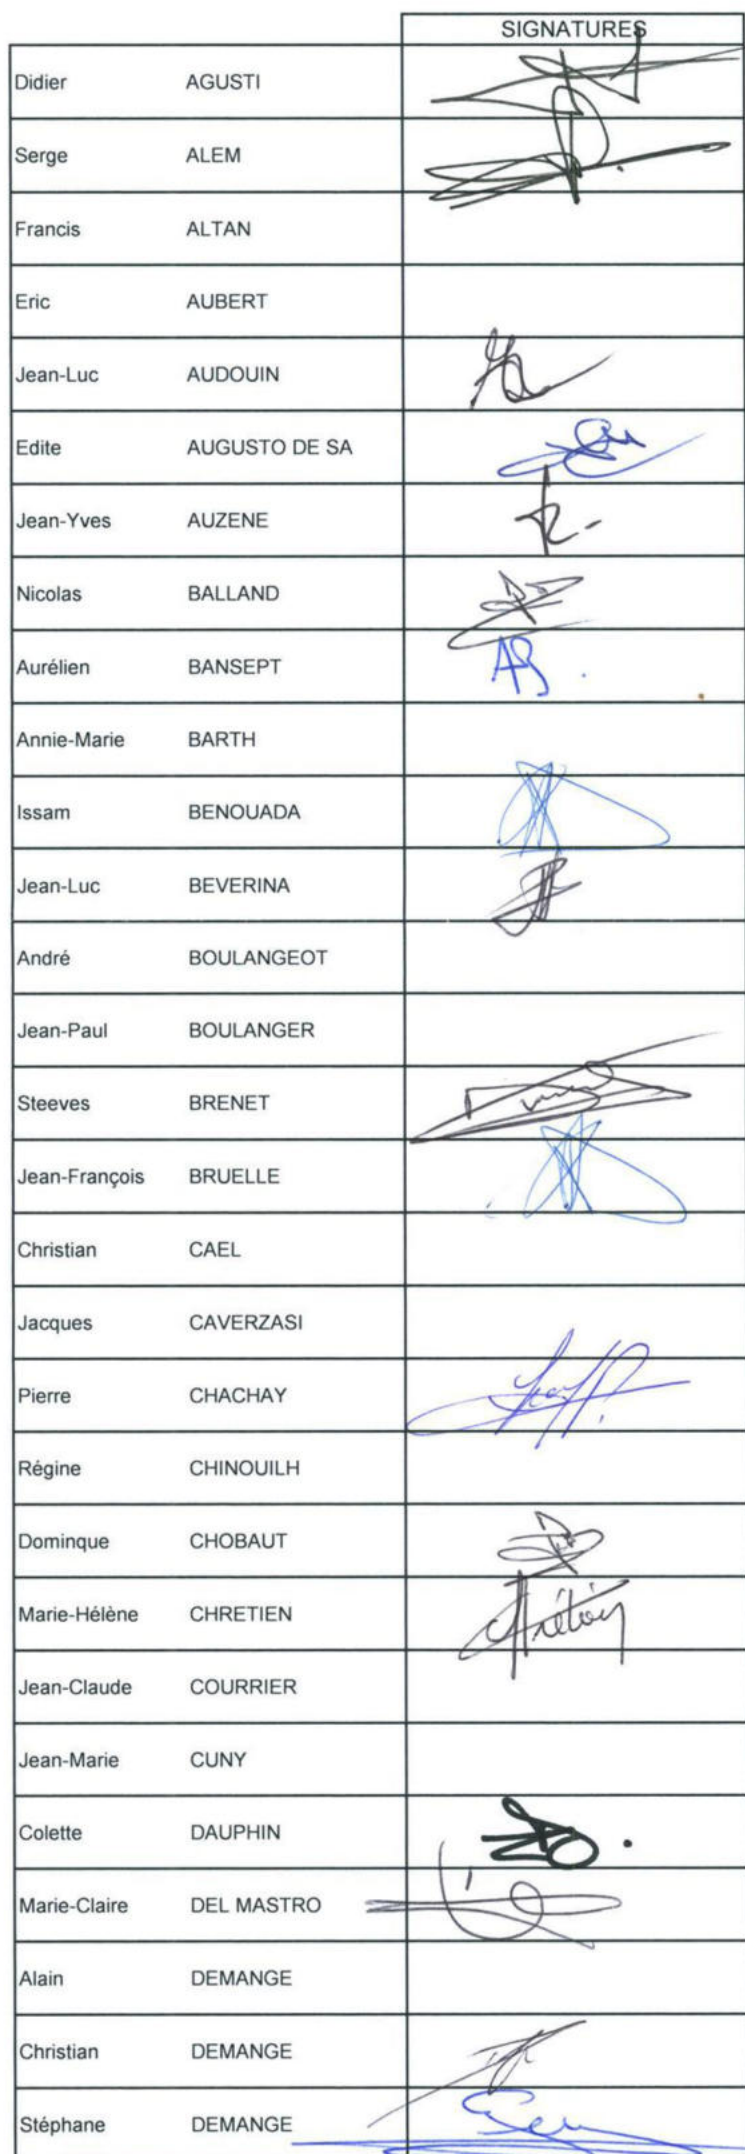 SIGNATURES
Didier AGUSTI
Serge ALEM
Francis ALTAN
Eric AUBERT
Jean-Luc AUDOUIN
Edite AUGUSTO DE SA
Jean-Yves AUZENE
Nicolas BALLAND
Aurélien BANSEPT
Annie-Marie BARTH
Issam BENOUADA
Jean-Luc BEVERINA
André BOULANGEOT
Jean-Paul BOULANGER
Steeves BRENET
Jean-François BRUELLE
Christian CAEL
Jacques CAVERZASI
Pierre CHACHAY
Régine CHINOUILH
Dominque CHOBAUT
Marie-Hélène CHRETIEN
Jean-Claude COURRIER
Jean-Marie CUNY
Colette DAUPHIN
Marie-Claire DEL MASTRO
Alain DEMANGE
Christian DEMANGE
Stéphane DEMANGE